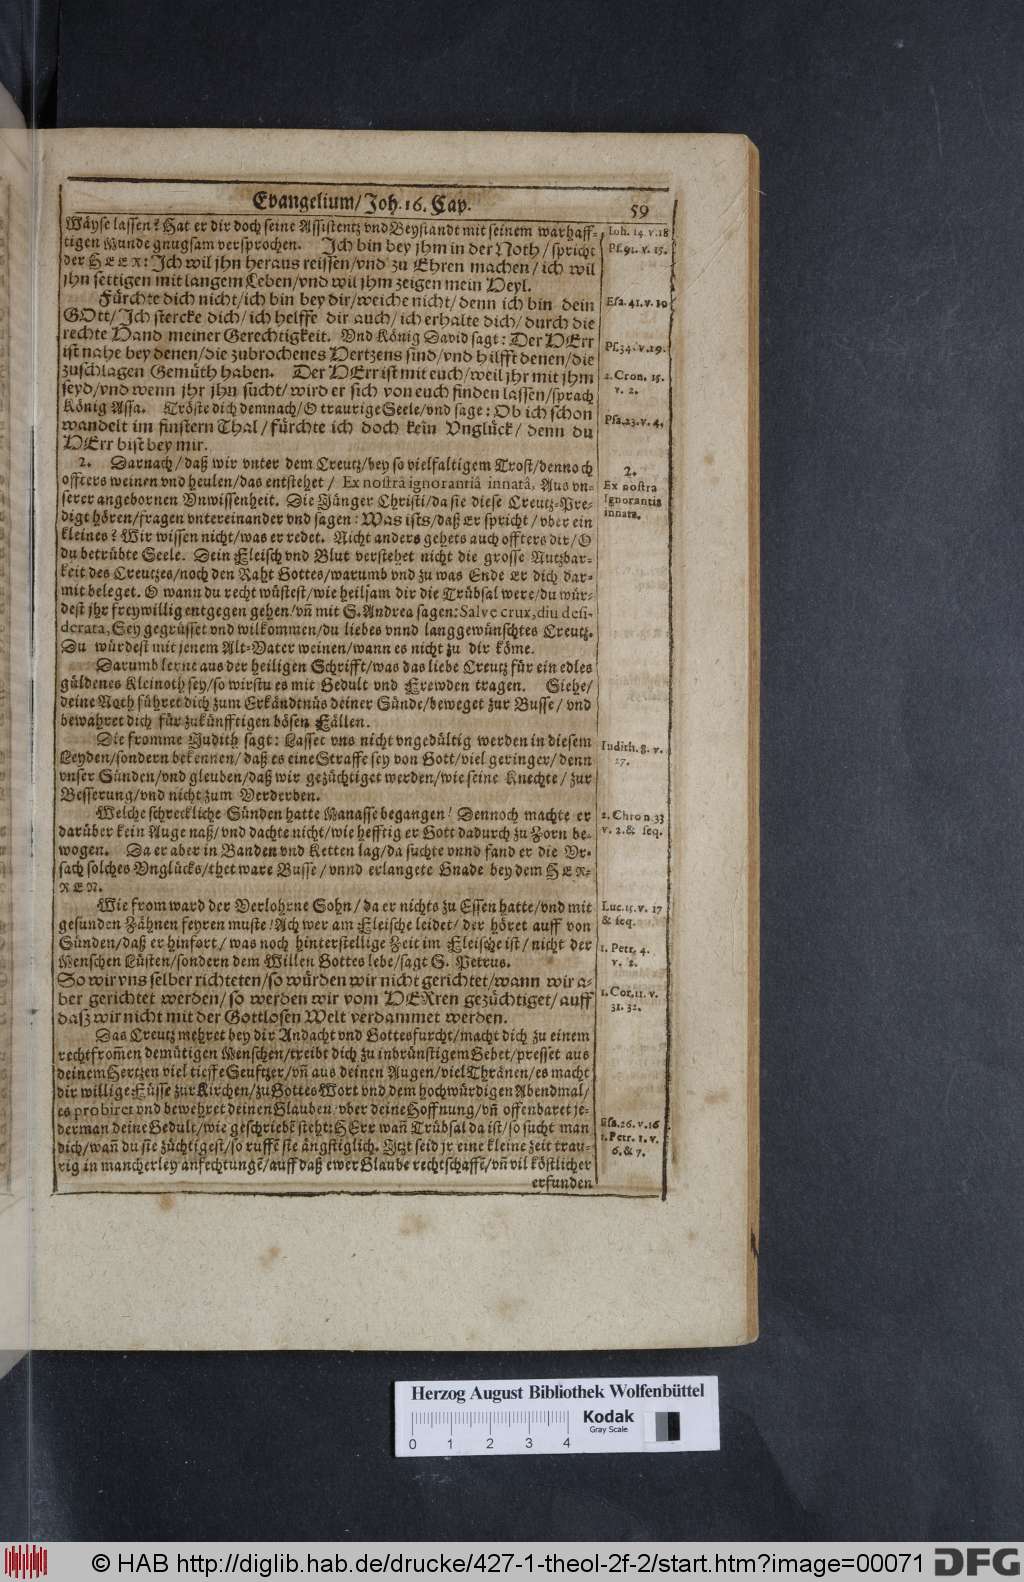 Evangelium/Joh. 16. Cap.
59
Wäyse lassen? Hat er dir doch seine Assistentz vnd Beystandt mit seinem warhaff-
tigen Munde gnugsam versprochen. Ich bin bey jhm in der Noth/spricht
der HERR: Ich wil jhn heraus reissen/vnd zu Ehren machen/ich wil
jhn settigen mit langem Leben/vnd wil jhm zeigen mein Heyl.
Fürchte dich nicht/ich bin bey dir/weiche nicht/denn ich bin dein
GOtt/Ich stercke dich/ich helffe dir auch/ich erhalte dich/durch die
rechte Hand meiner Gerechtigkeit. Vnd König David sagt: Der HErr
ist nahe bey denen/die zubrochenes Hertzens sind/vnd hilfft denen/die
zuschlagen Gemüth haben. Der HErr ist mit euch/weil jhr mit jhm
seyd/vnd wenn jhr jhn sucht/wird er sich von euch finden lassen/sprach
König Assa. Tröste dich demnach/O traurige Seele/vnd sage: Ob ich schon
wandelt im finstern Thal/fürchte ich doch kein Vnglück/denn du
HErr bist bey mir.
2. Darnach/daß wir vnter dem Creutz/bey so vielfaltigem Trost/dennoch
offters weinen vnd heulen/das entstehet/ Ex nostrâ ignorantiâ innatâ, Aus vn-
serer angebornen Vnwissenheit. Die Jünger Christi/da sie diese Creutz-Pre-
digt hören/fragen vntereinander vnd sagen: Was ists/daß Er spricht/vber ein
kleines? Wir wissen nicht/was er redet. Nicht anders gehets auch offters dir/O
du betrübte Seele. Dein Fleisch vnd Blut verstehet nicht die grosse Nutzbar-
keit des Creutzes/noch den Raht Gottes/warumb vnd zu was Ende Er dich dar-
mit beleget. O wann du recht wüstest/wie heilsam dir die Trübsal were/du wür-
dest jhr freywillig entgegen gehen/vñ mit S. Andrea sagen: Salve crux, diu desi-
derata, Sey gegrüsset vnd wilkommen/du liebes vnnd langgewünschtes Creutz.
Du würdest mit jenem Alt-Vater weinen/wann es nicht zu dir köme.
Darumb lerne aus der heiligen Schrifft/was das liebe Creutz für ein edles
güldenes Kleinoth sey/so wirstu es mit Gedult vnd Frewden tragen. Siehe/
deine Noth führet dich zum Erkändtnüs deiner Sünde/beweget zur Busse/vnd
bewahret dich für zukünfftigen bösen Fällen.
Die fromme Judith sagt: Lasset vns nicht vngedültig werden in diesem
Leyden/sondern bekennen/daß es eine Straffe sey von Gott/viel geringer/denn
vnser Sünden/vnd gleuben/daß wir gezüchtiget werden/wie seine Knechte/zur
Besserung/vnd nicht zum Verderben.
Welche schreckliche Sünden hatte Manasse begangen! Dennoch machte er
darüber kein Auge naß/vnd dachte nicht/wie hefftig er Gott dadurch zu Zorn be-
wogen. Da er aber in Banden vnd Ketten lag/da suchte vnnd fand er die Vr-
sach solches Vnglücks/thet ware Busse/vnnd erlangete Gnade bey dem HER-
REN.
Wie from ward der Verlohrne Sohn/da er nichts zu Essen hatte/vnd mit
gesunden Zähnen feyren muste! Ach wer am Fleische leidet/der höret auff von
Sünden/daß er hinfort/was noch hinterstellige Zeit im Fleische ist/nicht der
Menschen Lüsten/sondern dem Willen Gottes lebe/sagt S. Petrus.
So wir vns selber richteten/so würden wir nicht gerichtet/wann wir a-
ber gerichtet werden/so werden wir vom HERren gezüchtiget/auff
daß wir nicht mit der Gottlosen Welt verdammet werden.
Das Creutz mehret bey dir Andacht vnd Gottesfurcht/macht dich zu einem
rechtfrom̃en demütigen Menschen/treibt dich zu inbrünstigem Gebet/presset aus
deinem Hertzen viel tieffe Seufftzer/vñ aus deinen Augen/viel Thränen/es macht
dir willige Füsse zur Kirchen/zu Gottes Wort vnd dem hochwürdigen Abendmal/
es probiret vnd bewehret deinen Glauben/vber deine Hoffnung/vñ offenbaret je-
derman deine Gedult/wie geschriebē steht: HErr wañ Trübsal da ist/so sucht man
dich/wañ du sie züchtigest/so ruffē sie ängstiglich. Jtzt seid jr eine kleine zeit trau-
rig in mancherley anfechtungē/auff daß ewer Glaube rechtschaffē/vñ vil köstlicher
erfunden
Ioh. 14. v. 18
Ps. 91. v. 15.
Esa. 41. v. 10
Ps. 34. v. 19.
2. Cron. 15.
v. 2.
Psa. 23. v. 4.
2.
Ex nostra
Ignorantia
innata.
Iudith. 8. v.
27.
2. Chron. 33
v. 2. & seq.
Luc. 15. v. 17
& seq.
1. Petr. 4.
v. 2.
1. Cor. 11. v.
31. 32.
Esa. 26. v. 16
1. Petr. 1. v.
6. & 7.
Herzog August Bibliothek Wolfenbüttel
0 1 2 3 4
Kodak
Gray Scale
© HAB http://diglib.hab.de/drucke/427-1-theol-2f-2/start.htm?image=00071
DFG